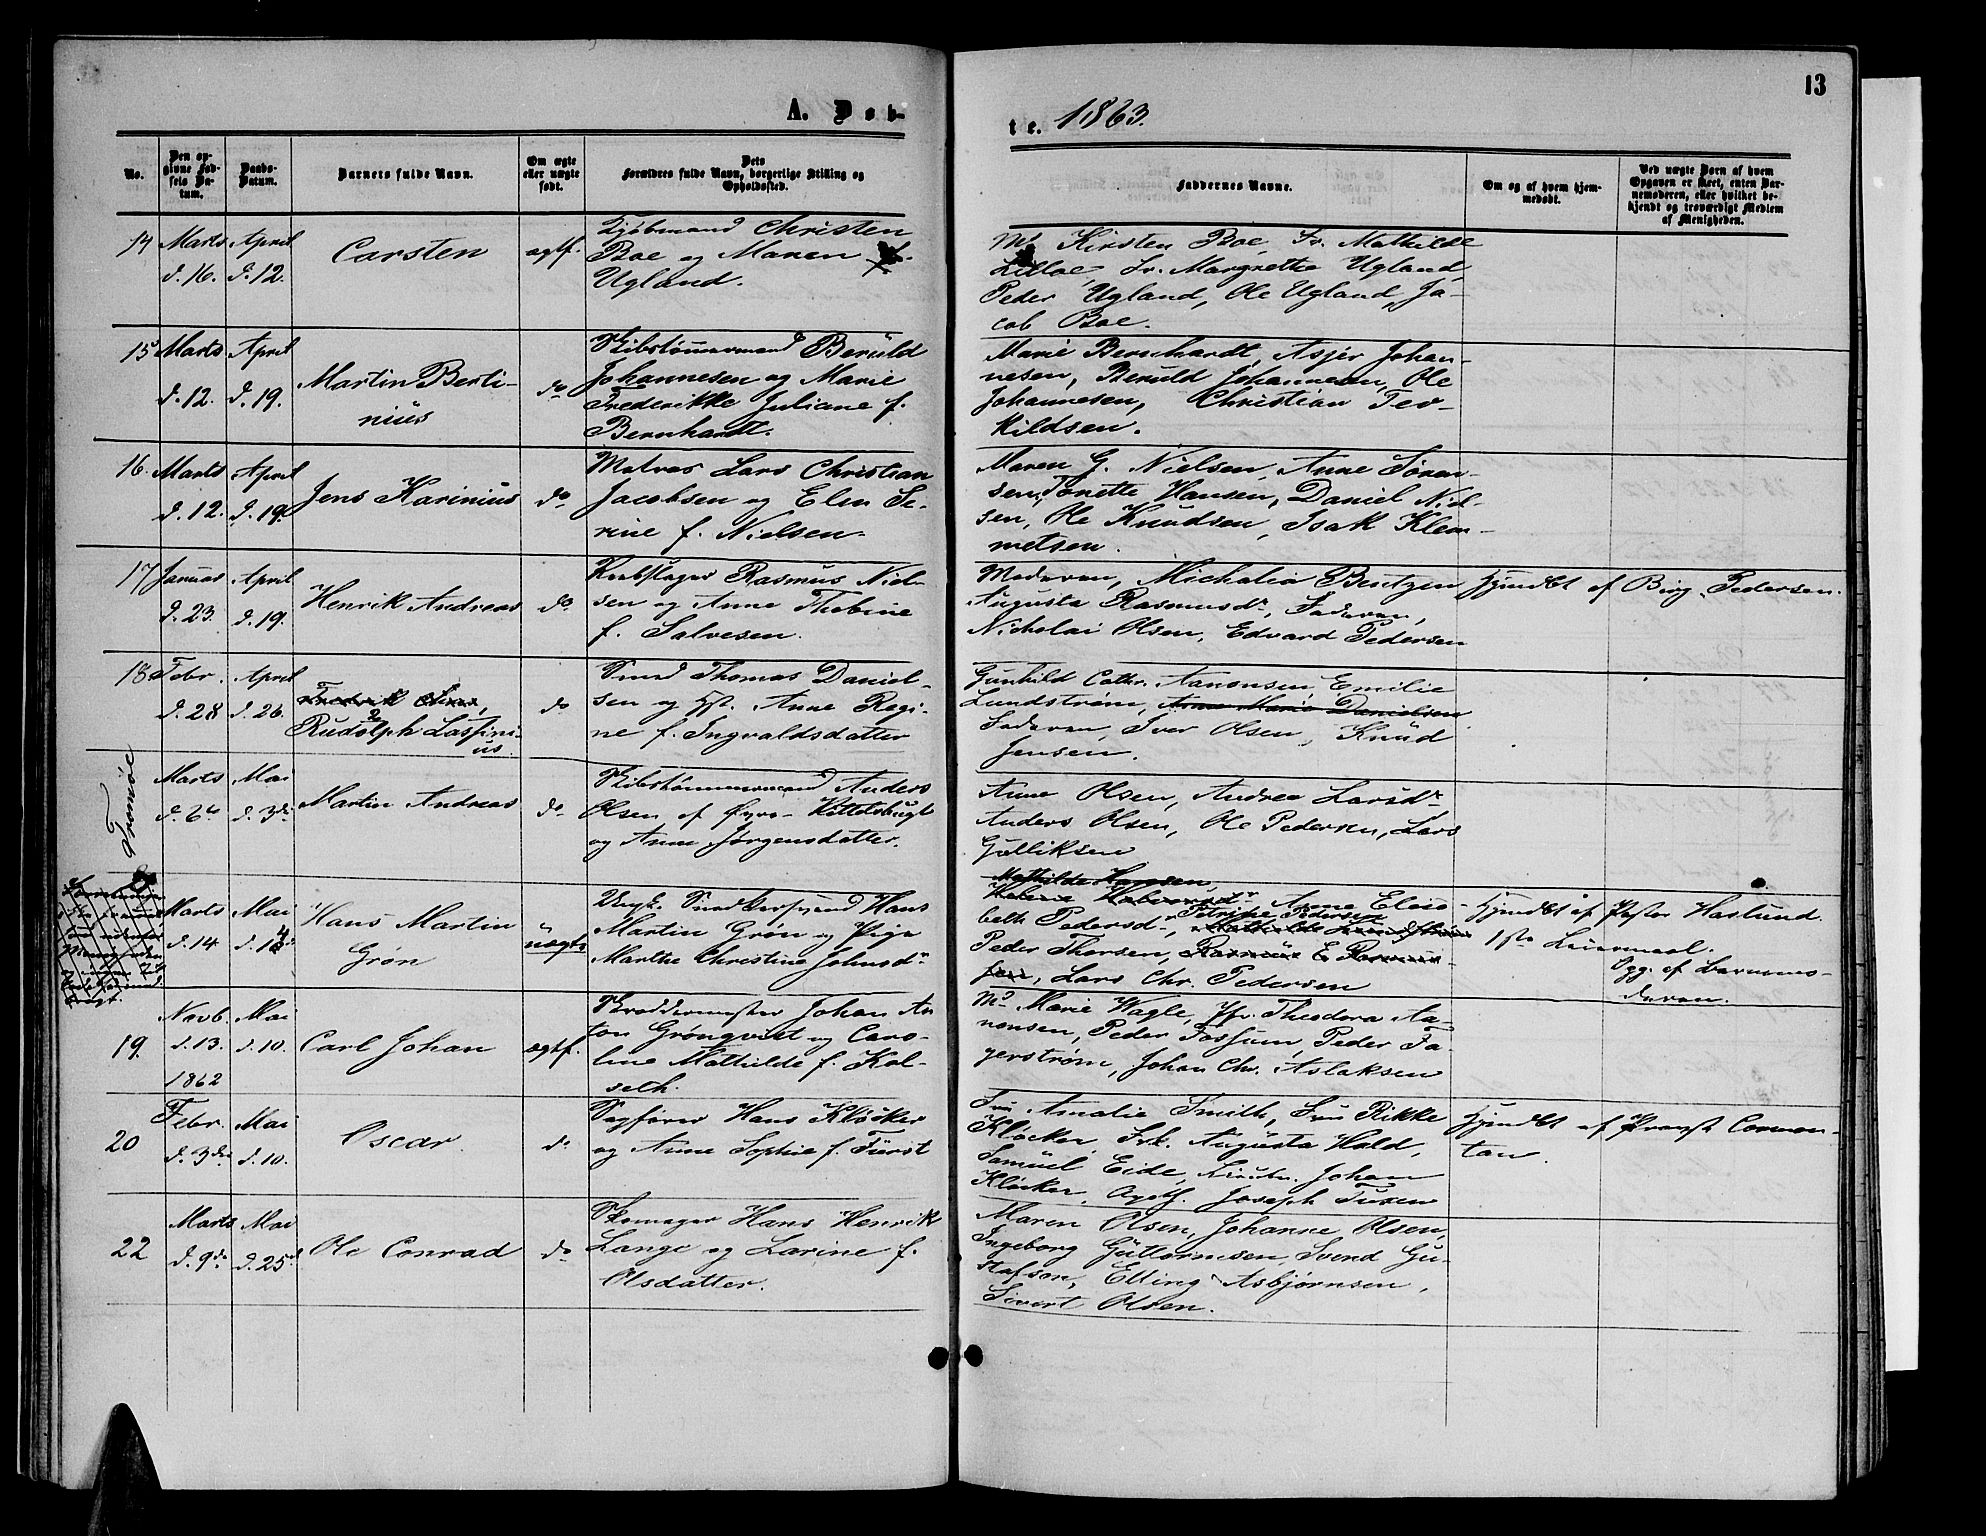 13
A. Døb-
te. 1863.
No.
Den opgivne Fødsels Datum.
Daabs-Datum.
Barnets fulde Navn.
Om ægte eller uægte født.
Dets Forældres fulde Navn, borgerlige Stilling og Opholdssted.
Faddernes Navne.
Om og af hvem hjemmedøbt.
Ved uægte Børn af hvem Opgaven er skeet, enten Barnemoderen, eller hvilket bekjendt og troværdigt Medlem af Menigheden.
14 Marts d. 16. April d. 12. Carsten ægtf.
Kjøbmand Christen
Boe og Maren f.
Ugland.
Md Kirsten Boe, Fr. Mathilde
Lilloe, Fr. Margrethe Ugland,
Peder Ugland, Ole Ugland, Ja-
cob Boe.
15 Marts d. 12. April d. 19. Martin Berti-
nius do
Skibstømmermand Beruld
Johannesen og Marie
Frederikke Juliane f.
Bernhardt.
Marie Bernhardt, Asjer Johan-
nesen, Beruld Johannesen, Ole
Johannesen, Christian Ter-
kildsen.
16. Marts d. 12. April d. 19. Jens Karinius do
Matros Lars Christian
Jacobsen og Elen Se-
rine f. Nielsen.
Maren G. Nielsen, Anne Søren-
sen, Tonette Hansen, Daniel Niel-
sen, Ole Knudsen, Isak Klem-
metsen.
17 Januar d. 23. April d. 19. Henrik Andreas do
Rebslager Rasmus Niel-
sen og Anne Thobine
f. Salvesen.
Moderen, Michalia Bentzen
Augusta Rasmusdr, Faderen,
Nicholai Olsen, Edvard Pedersen
Hjmdbt af Birg. Pedersen.
18 Febr. d. 28 April d. 26.
Rudolph Lassini-
us. do
Smed Thomas Daniel-
sen og Hst. Anne Regi-
ne f. Ingvaldsdatter
Gunhild Cathr. Aanonsen, Emilie
Lundstrøm, Anne Marie Danielsen
Faderen, Iver Olsen, Knud
Jensen.
Tromøe
Marts d. 6te Mai d. 3die Martin Andreas do
Skibstømmermand Anders
Olsen af Øyra-Kittelsbugt
og Anne Jørgensdatter.
Anne Olsen, Andrea Larsdr
Anders Olsen, Ole Pedersen, Lars
Gulliksen
Marts d. 14 Mai d. 14 Hans Martin
Grøn uægte
Ungk. Snedkersvend Hans
Martin Grøn og Pige
Marthe Christine Johnsdr
Mathilde Hansen,
Anne Elisa-
beth Pedersd., Petrine Pedersen
Peder Thorsen, Rasmus E Rasmus-
sen, Lars Chr. Pedersen
Hjmdbt af Pastor Haslund.
1ste Leiermaal.
Opg. af Barnemo-
deren.
19. Novb. d. 13. 1862 Mai d. 10. Carl Johan ægtf.
Skræddermester Johan An
ton Grønqvist og Caro-
line Mathilde f. Kol-
seth.
Md Marie Wagle, Jfr. Theodora Aa-
nonsen, Peder Fossum, Peder Fa-
gerstrøm, Johan Chr. Aslaksen
20 Febr. d. 3die Mai d. 10. Oscar do
Sagfører Hans Kløcker
og Anne Sophie f. Fürst
Fru Amalie Smith, Fru Rikke
Kløcker, Frk. Augusta Hald,
Samuel Eide, Johan
Kløcker, Joseph Fürst
Hjmdbt af Provst Comon-
tan.
22 Marts d. 9de Mai d. 25de Ole Conrad do
Skomager Hans Henrik
Lange og Larine f.
Olsdatter.
Maren Olsen, Johanne Olsen,
Ingeborg Guttormsen, Svend Gu-
stafson, Elling Asbjørnsen,
Sivert Olsen.